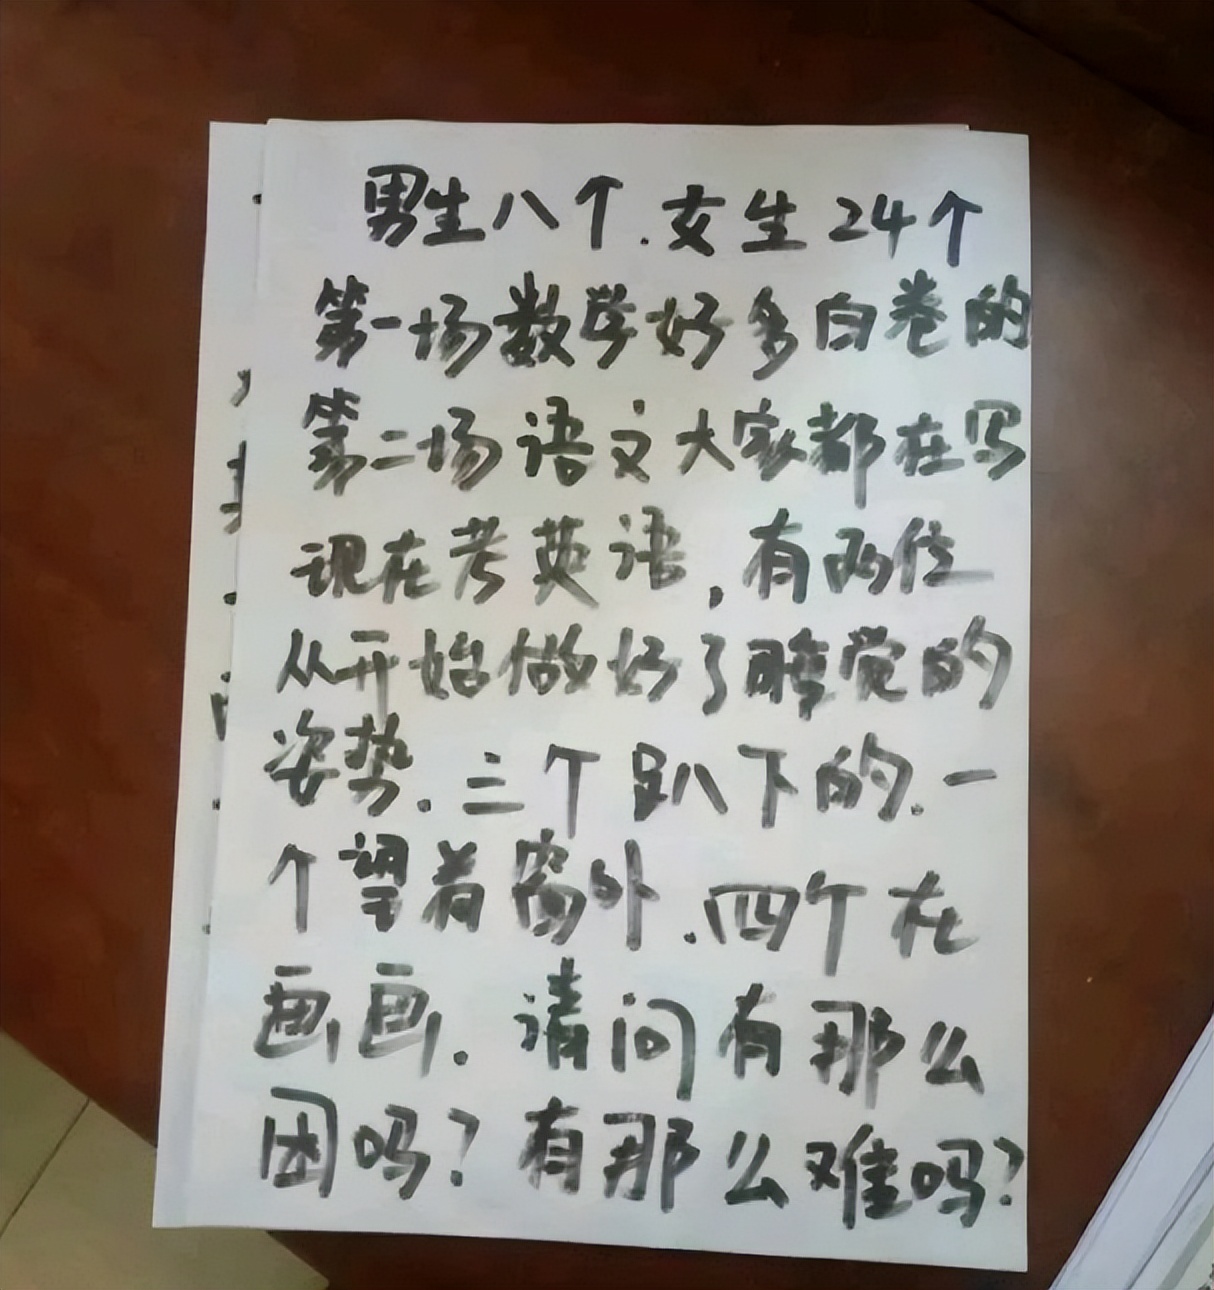 男生八个.女生24个
第一场数学好多白卷的
第二场语文大家都在写
现在考英语,有两位
从开始做好了睡觉的
姿势.三个趴下的.一
个望着窗外.四个在
画画.请问有那么
困吗?有那么难吗?